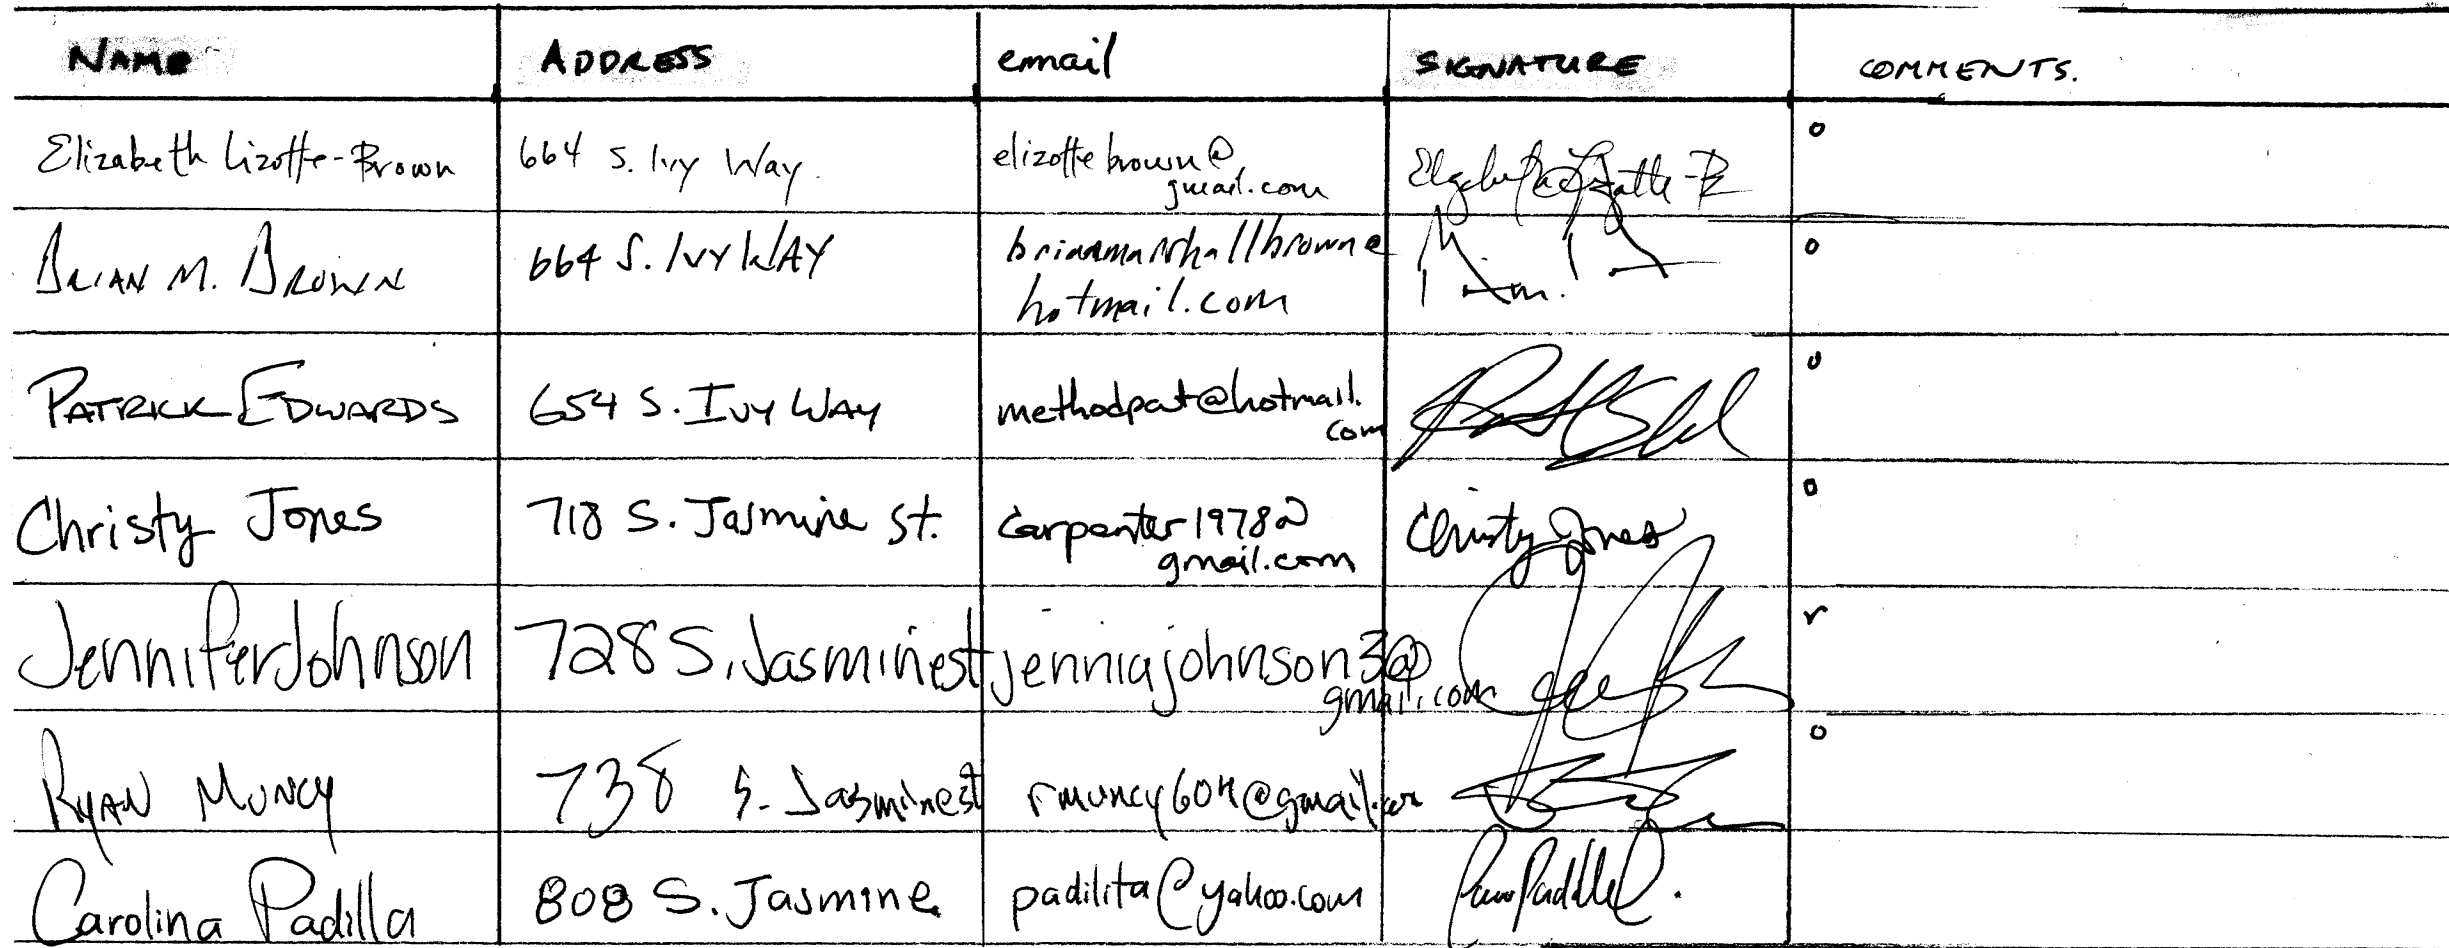 NAME ADDRESS email SIGNATURE COMMENTS.
Elizabeth Lizotte-Brown 664 S. Ivy Way. elizottebrown@ o
gmail.com
BRIAN M. BROWN 664 S. IVY WAY brianmarshallbrown@ o
hotmail.com
PATRICK EDWARDS 654 S. IVY WAY methodpat@hotmail. o
com
Christy Jones 718 S. Jasmine St. carpenter1978@ Christy Jones o
gmail.com
Jennifer Johnson 728 S. Jasmine st jenniajohnson3@ r
gmail.com
RYAN MUNCY 738 S. Jasmine st @gmail.com o
Carolina Padilla 808 S. Jasmine. padilita@yahoo.com